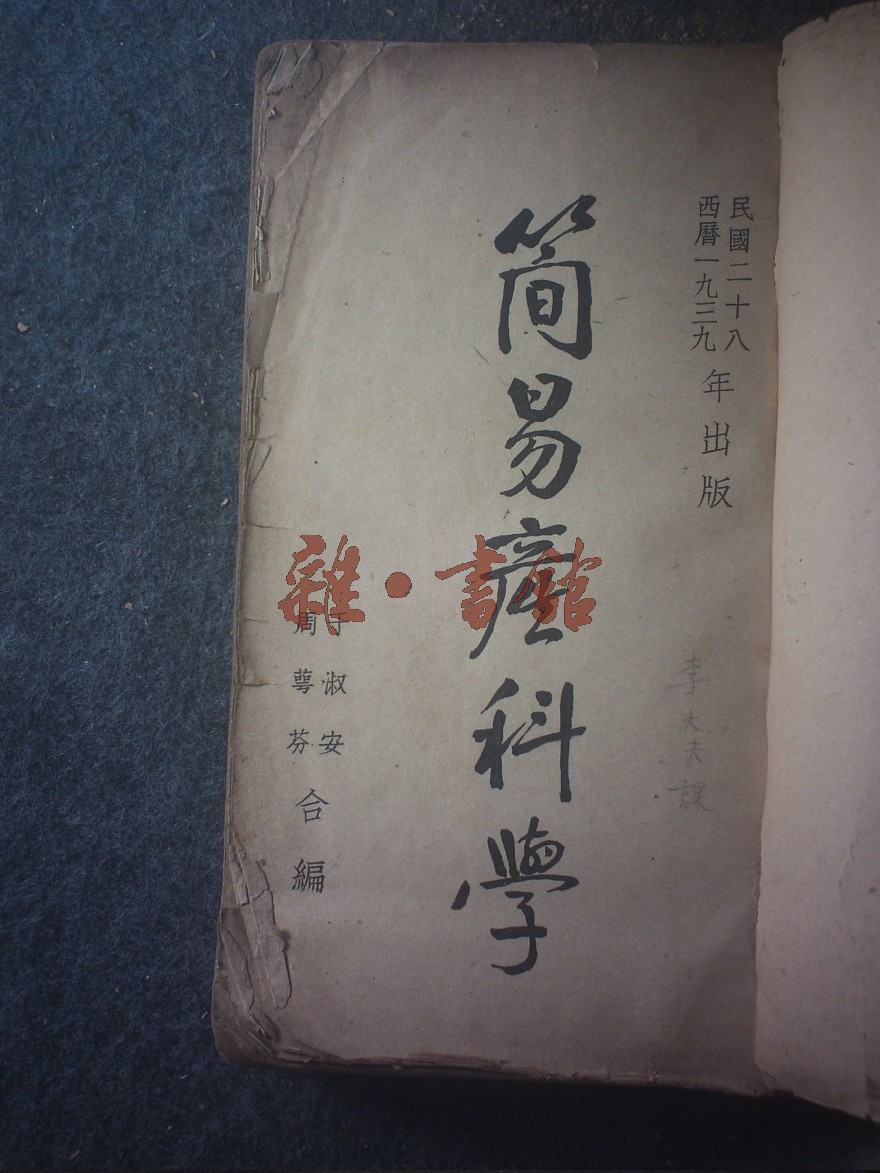 民國二十八
西曆一九三九
年出版
簡易產科學
于淑安
周萼芬
合編
李大夫課
雜·書館